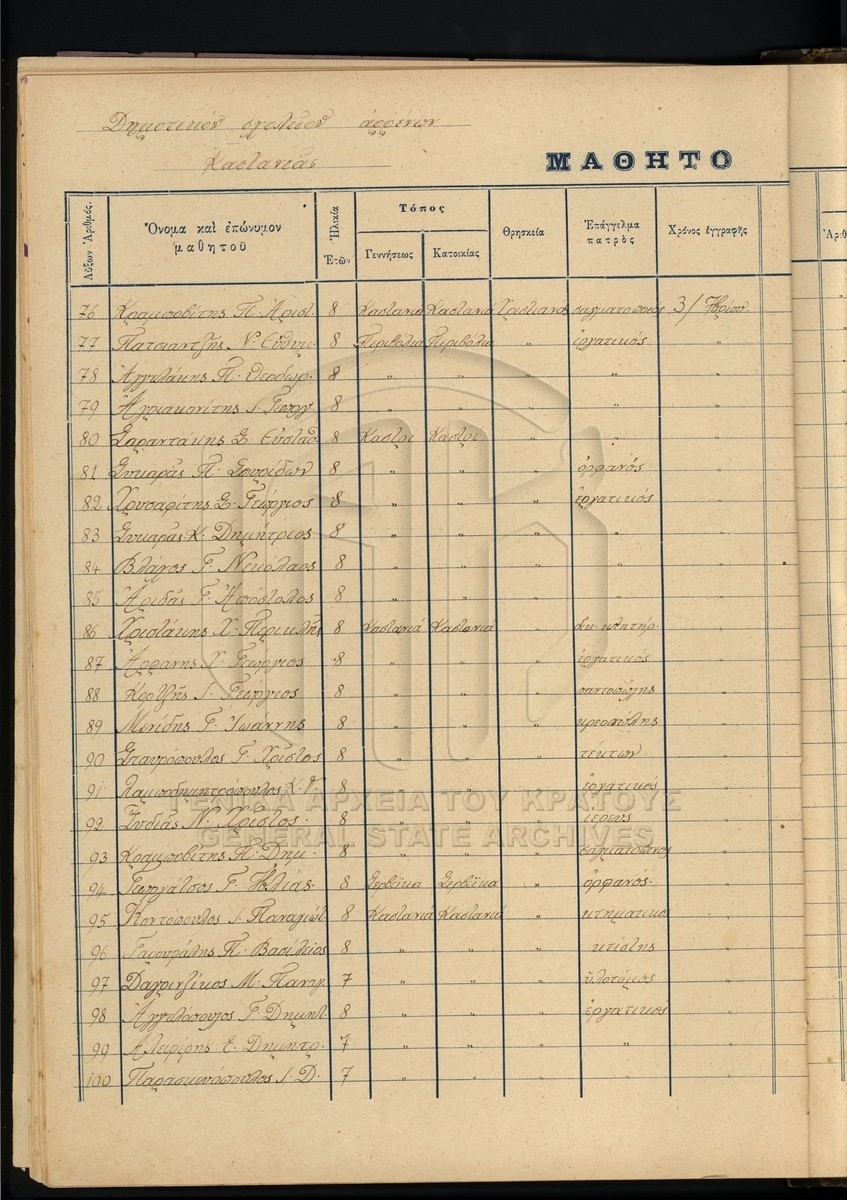 Δημοτικόν σχολεῖον ἀρρένων
Καστανιᾶς
ΜΑΘΗΤΟ
Αὔξων Ἀριθμός. Ὄνομα καὶ ἐπώνυμον μαθητοῦ Ἡλικία Ἐτῶν Τόπος Γεννήσεως Κατοικίας Θρησκεία Ἐπάγγελμα πατρὸς Χρόνος ἐγγραφῆς
76 Κραμποβίτης Π. Ἀριστ. 8 Καστανιά Καστανιά Χριστιανός σαγματοποιός 3/
77 Πατσιαντζῆς Ν. Εὐθυμ. 8 Περιβόλια Περιβόλια " ἐργατικός "
78 Ἀγγελάκης Π. Θεόδωρ. 8 " " " " "
79 Ἀγριακονίτης Ι. Γεωργ. 8 " " " " "
80 Σαραντάκης Σ. Εὐστάθ 8 Καστρί Καστρί " " "
81 Π. Σπυρίδων 8 " " " ὀρφανός "
82 Χρυσαρίτης Σ. Γεώργιος 8 " " " ἐργατικός "
83 Κ. Δημήτριος 8 " " " " "
84 Βλάχος Γ. Νικόλαος 8 " " " " "
85 Ἀριδᾶς Γ. Ἀπόστολος 8 " " " " "
86 Χριστάκης Χ. Περικλῆς 8 Καστανιά Καστανιά " δικ. κλητήρ. "
87 Χ. Γεώργιος 8 " " " ἐργατικός "
88 Ι. Γεώργιος 8 " " " παντοπώλης "
89 Μενίδης Γ. Ἰωάννης 8 " " " κρεοπώλης "
90 Σταυρόπουλος Γ. Χρῖστος 8 " " " τέκτων "
91 Παπαδημητρόπουλος Κ. Θ. 8 " " " ἐργατικός "
92 Ν. Χρῖστος. 8 " " " ἱερεύς "
93 Κραμποβίτης Π. Δημ. 8 " " " σαγματοποιός "
94 Γ. Ἠλίας. 8 Σερβέϊκα Σερβέϊκα " ὀρφανός. "
95 Κοντόπουλος Ι. Παναγιώτ. 8 Καστανιά Καστανιά " κτηματικό "
96 Π. Βασίλειος 8 " " " κτίστης "
97 Μ. Παναγ. 7 " " " ὑλοτόμος "
98 Ἀγγελόπουλος Γ. Δημητ. 8 " " " ἐργατικός "
99 Ἀλειφέρης Ε. Δημητρ. 7 " " " " "
100 Παρασκευόπουλος Ι. Δ. 7 " " " " "
ΓΕΝΙΚΑ ΑΡΧΕΙΑ ΤΟΥ ΚΡΑΤΟΥΣ
GENERAL STATE ARCHIVES
Ἀριθ